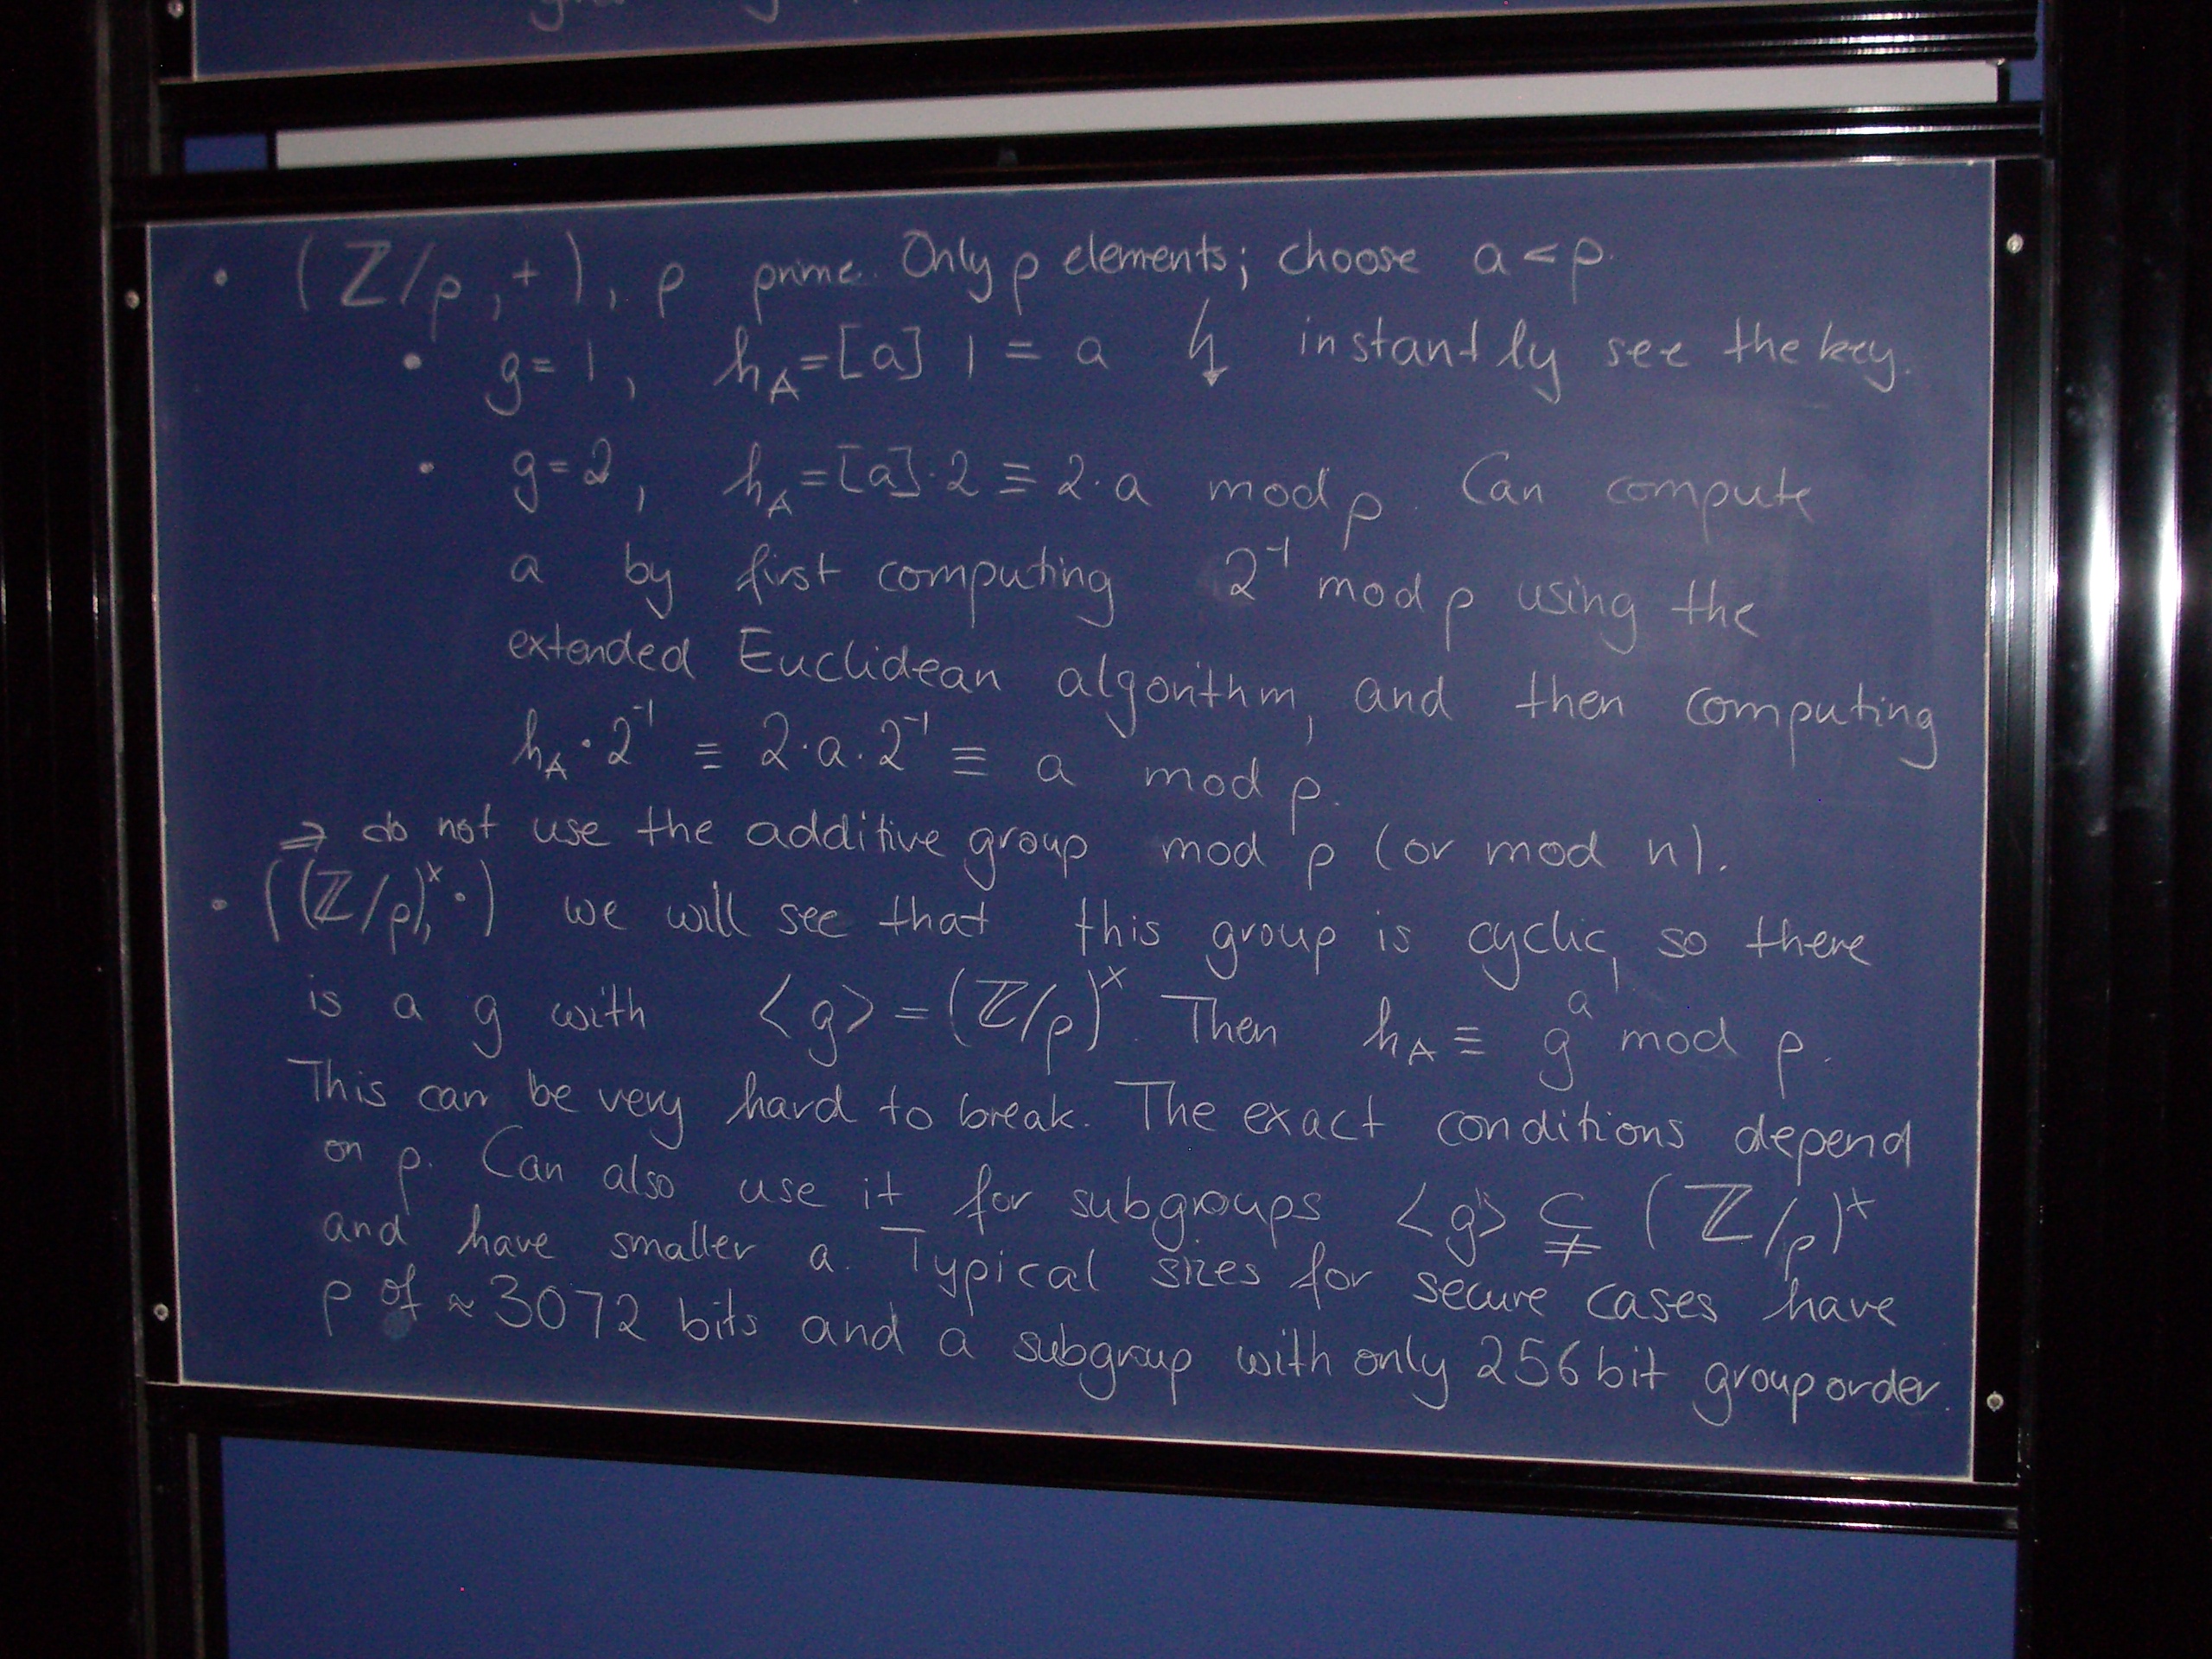 • (ℤ/p, +), p prime. Only p elements; choose a < p.
• g = 1, h_A = [a] 1 = a ↯ instantly see the key.
• g = 2, h_A = [a]·2 ≡ 2·a mod p. Can compute
a by first computing 2⁻¹ mod p using the
extended Euclidean algorithm, and then computing
h_A · 2⁻¹ ≡ 2·a·2⁻¹ ≡ a mod p.
⇒ do not use the additive group mod p (or mod n).
• ((ℤ/p)ˣ, ·) we will see that this group is cyclic, so there
is a g with <g> = (ℤ/p)ˣ. Then h_A ≡ gᵃ mod p.
This can be very hard to break. The exact conditions depend
on p. Can also use it for subgroups <g> ⊊ (ℤ/p)ˣ
and have smaller a. Typical sizes for secure cases have
p of ≈ 3072 bits and a subgroup with only 256 bit group order.